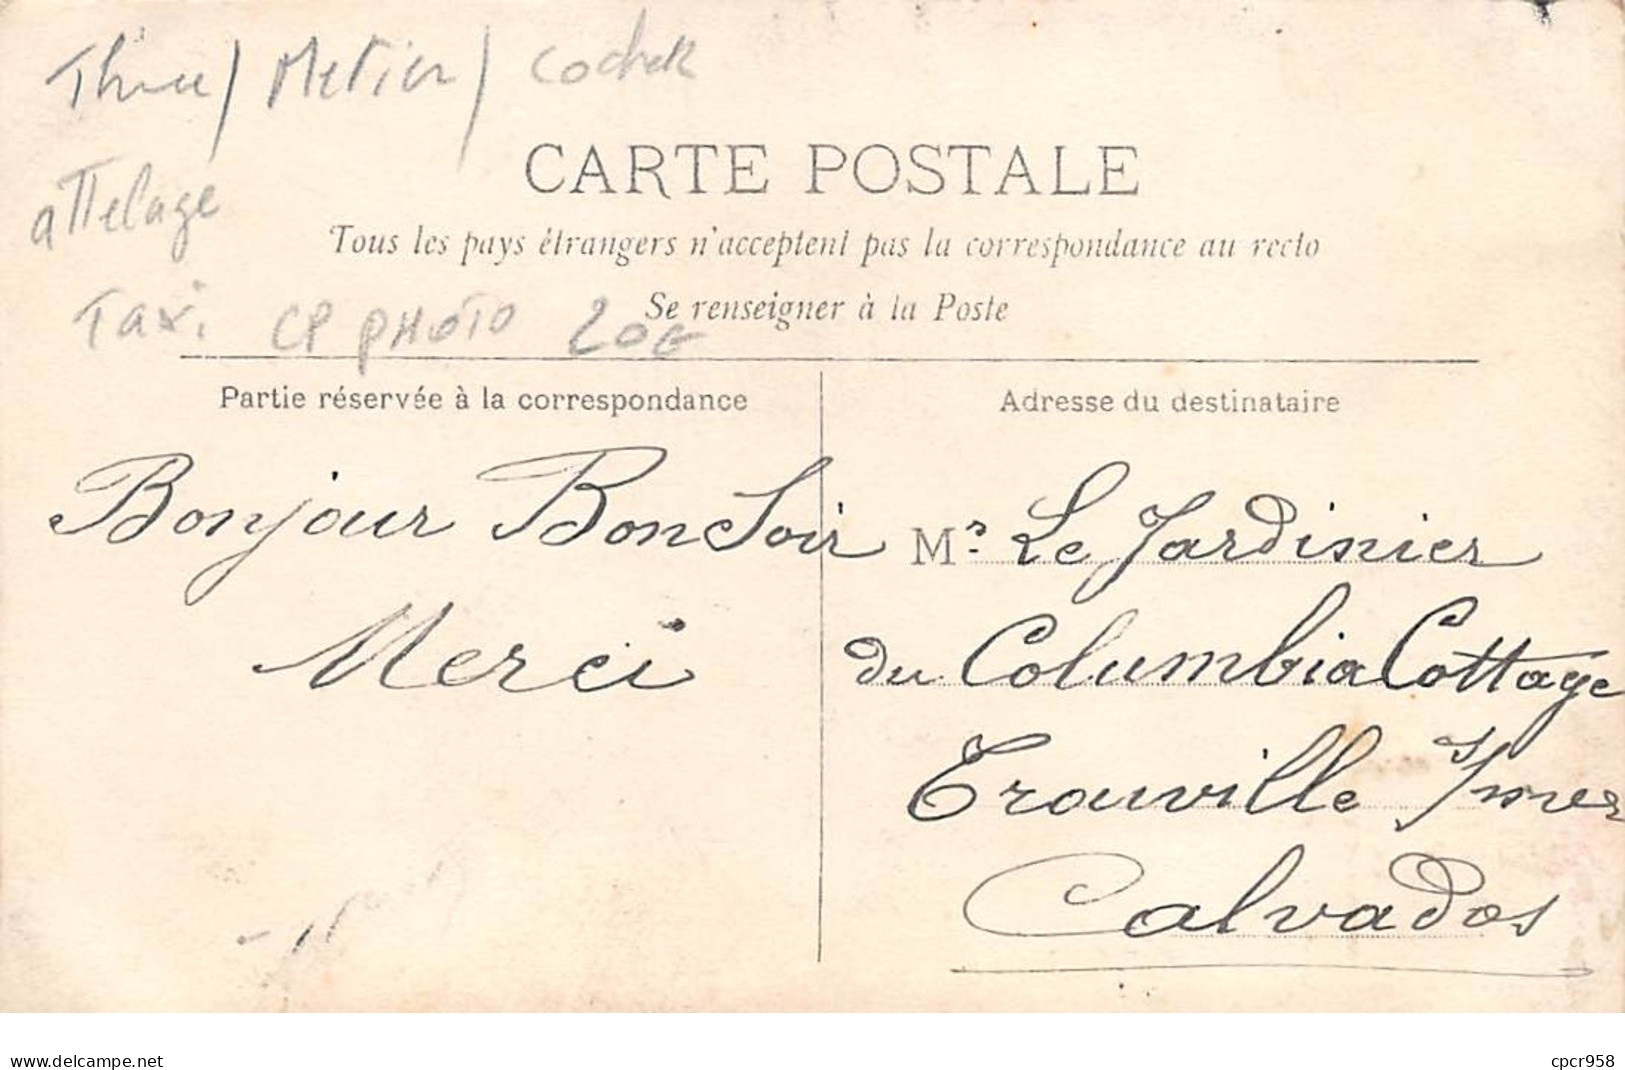 Métier / Cocher
CARTE POSTALE
attelage
Tous les pays étrangers n'acceptent pas la correspondance au recto
Taxi. CP PHOTO 20€
Se renseigner à la Poste
Partie réservée à la correspondance
Bonjour Bonsoir
Merci
Adresse du destinataire
Mr Le Jardinier
du Columbia Cottage
Trouville s/mer
Calvados
delcampe.net
cpcr958